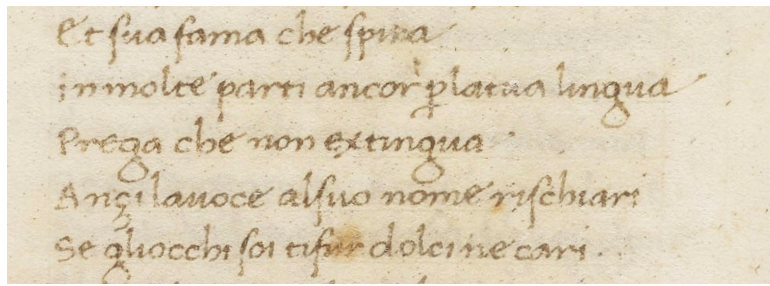 Et sua fama che spira
in molte parti ancor ꝑlatua lingua
Prega che non extingua
Ançi lavoce alsuo nome rischiari
Se gliocchi soi tifur dolci ne cari.